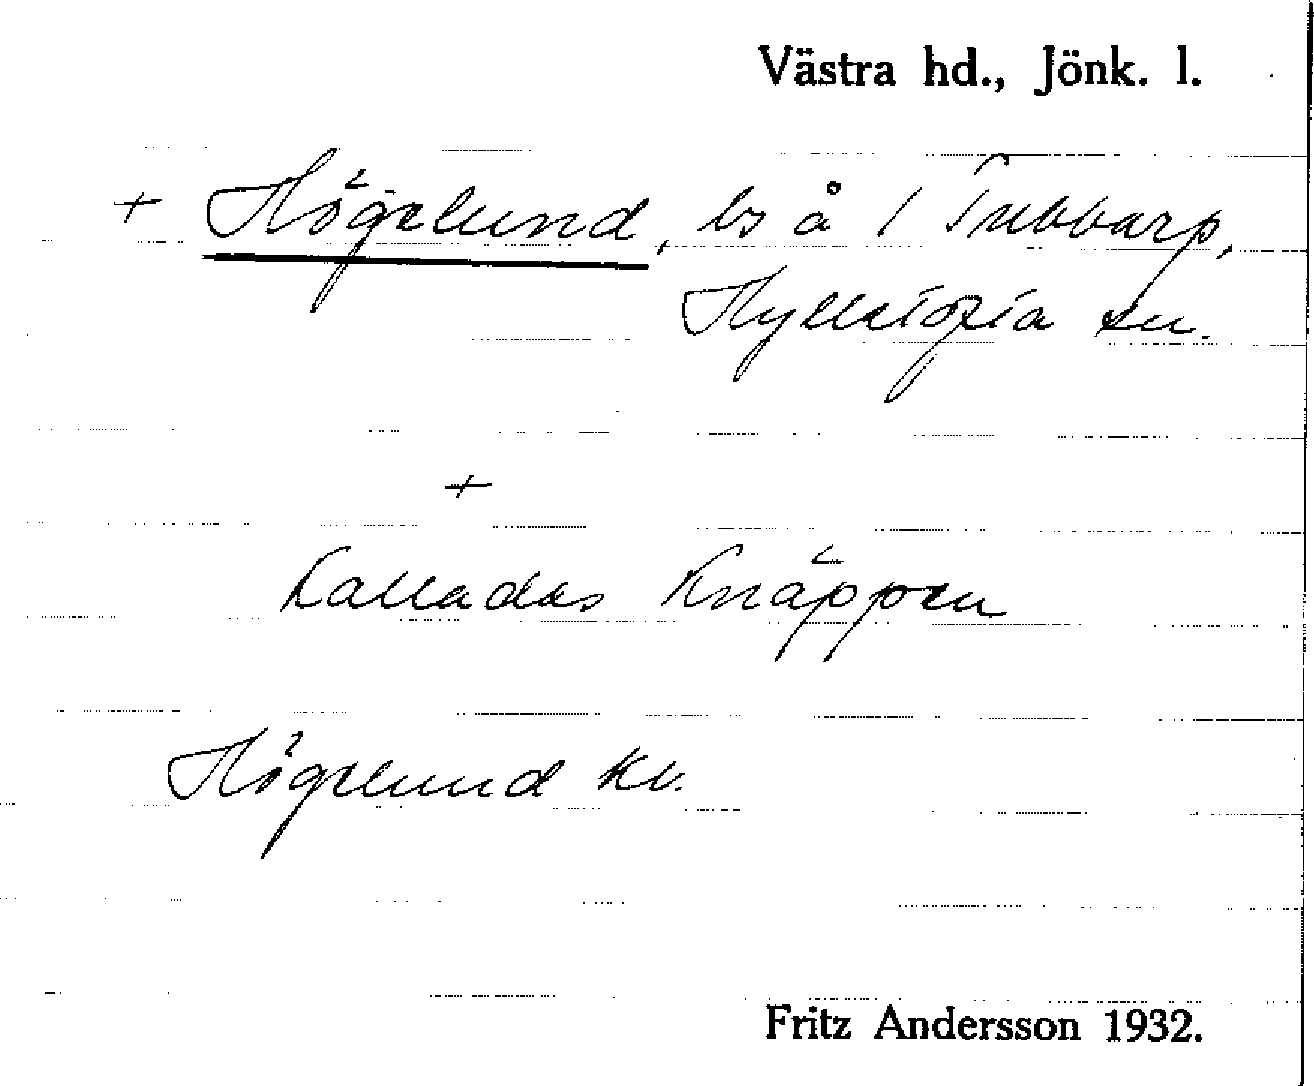 Västra hd., Jönk. l.
+ Högelund, bs å 1 Tubbarp,
Hylletofta sn.
+
Kallades Knäppen
Högelund kv.
Fritz Andersson 1932.